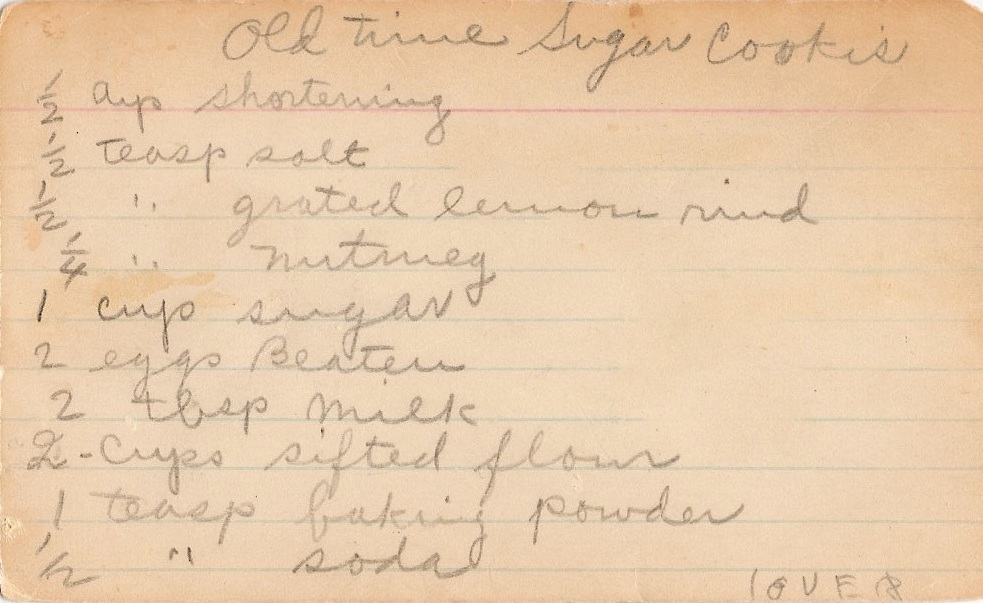 Old time Sugar Cookis
1/2 cup shortening
1/2 teasp salt
1/2 " grated lemon rind
1/4 " nutmeg
1 cup sugar
2 eggs Beaten
2 tbsp milk
2 - Cups sifted flour
1 teasp baking powder
1/2 " soda
OVER